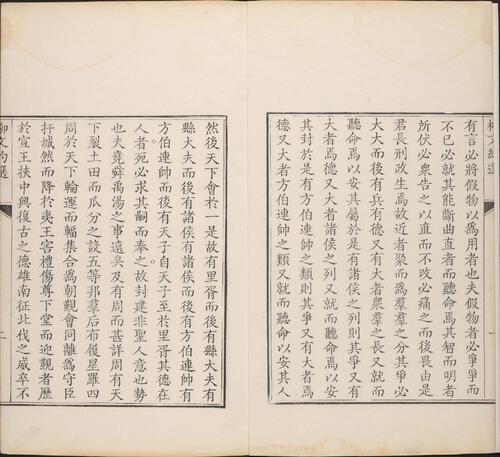 有言必將假物以爲用者也夫假物者必爭爭而
不已必就其能斷曲直者而聽命焉其智而明者
所伏必衆告之以直而不改必痛之而後畏由是
君長刑政生焉故近者聚而爲羣羣之分其爭必
大大而後有兵有德又有大者衆羣之長又就而
聽命焉以安其屬於是有諸侯之列則其爭又有
大者焉德又大者諸侯之列又就而聽命焉以安
其封於是有方伯連帥之類則其爭又有大者焉
德又大者方伯連帥之類又就而聽命以安其人
然後天下會於一是故有里胥而後有縣大夫有
縣大夫而後有諸侯有諸侯而後有方伯連帥有
方伯連帥而後有天子自天子至於里胥其德在
人者死必求其嗣而奉之故封建非聖人意也勢
也夫堯舜禹湯之事遠矣及有周而甚詳周有天
下裂土田而瓜分之設五等邦羣后布履星羅四
周於天下輪運而輻集合爲朝覲會同離爲守臣
扞城然而降於夷王害禮傷尊下堂而迎覲者歷
於宣王挾中興復古之德雄南征北伐之威卒不
柳文約選